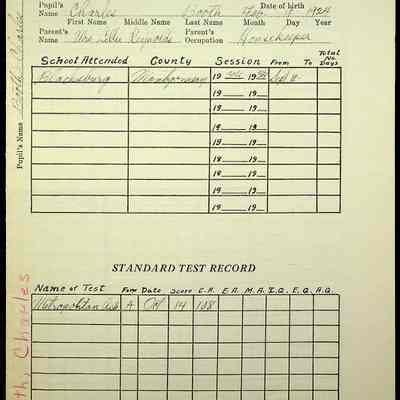 Pupil's Name Charles Booth Feb. 9 1924 Date of birth
First Name Middle Name Last Name Month Day Year
Parent's Name Mrs. Reynolds Parent's Occupation Housekeeper
Pupil's Name Booth Charles
School Attended County Session From To Total No. Days
Blacksburg Montgomery 19 19 Sept
19 19
19 19
19 19
19 19
18 19
19 19
19 19
19 19
STANDARD TEST RECORD
Name of Test Form Date Score C.A. E.A. M.A. I.Q. E.Q. A.Q.
Metropolitan A Oct 14 108
th, Charles